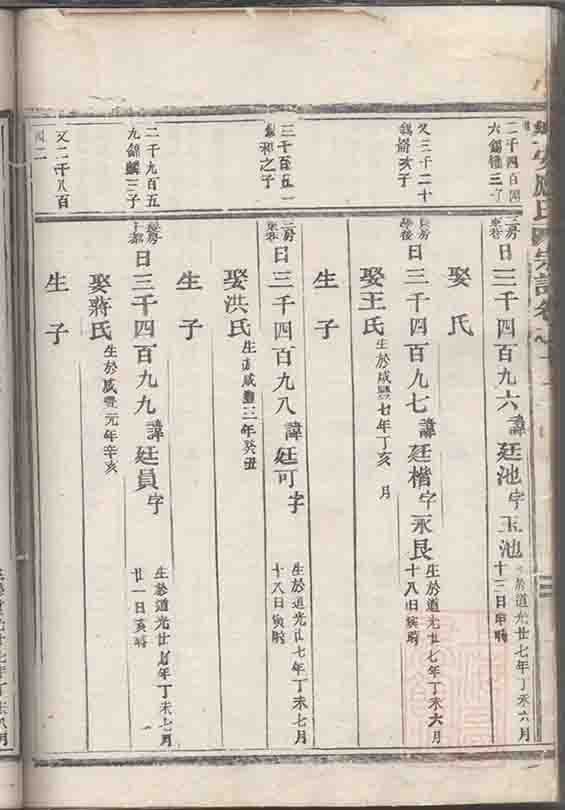 二千四百四
六錫
三房
日三千四百九六諱廷池字玉池
於道光廿七年丁未六月
十二日申時
娶 氏
又三千二十
錫 亥子
長房
學後
日三千四百九七諱廷楷字永良
生於道光廿七年丁未六月
十八日寅時
娶王氏生於咸豐七年丁亥 月
生子
三千百五一
和之子
三房
日三千四百九八諱廷可字
生於道光廿七年丁未七月
十八日寅時
娶洪氏生於咸豐三年癸丑
生子
二千九百五
九錦麟三子
長房
日三千四百九九諱廷員字
生於道光廿七年丁未七月
廿一日亥時
娶蔣氏生於咸豐元年辛亥
生子
又二千八百
四二